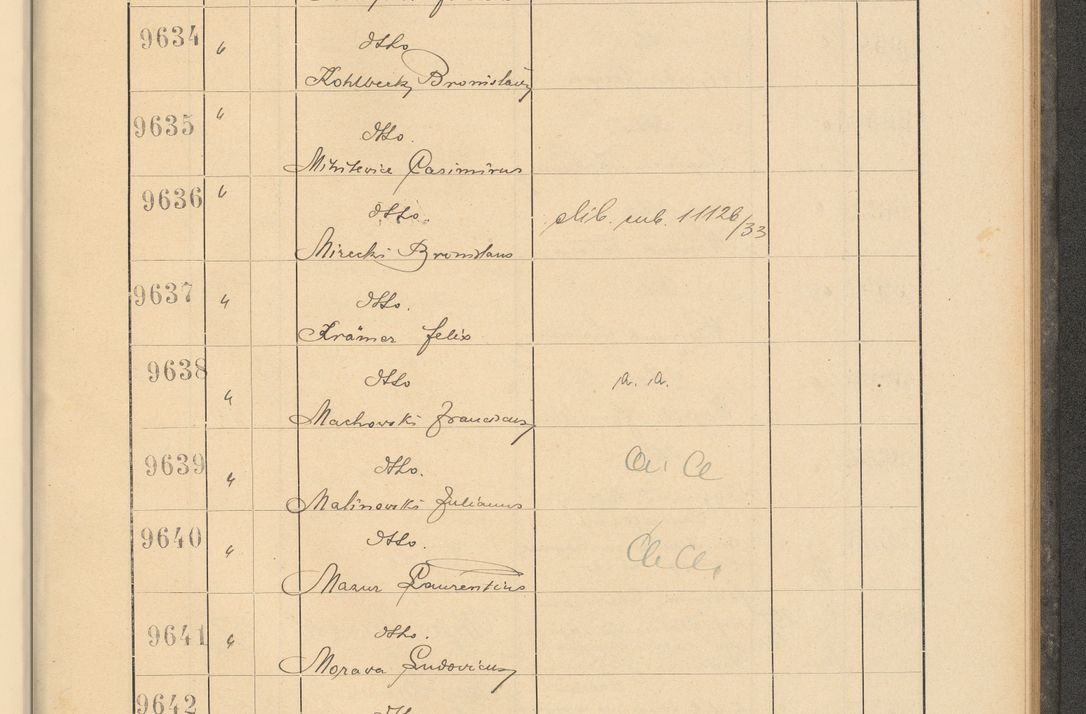 9634 " dtto
Kohlbeck Bronislaus
9635 " dtto.
Mitkiewicz Casimirus
9636 " dtto. sub. 11126/33
Mirecki Bronislaus
9637 " dtto.
Krämer Felix
9638 " dtto a. a.
Machowski Franciscus
9639 " dtto. a. a
Malinowski Julianus
9640 " dtto. a. a.
Mazur Laurentius
9641 " dtto.
Morava Ludovicus
9642